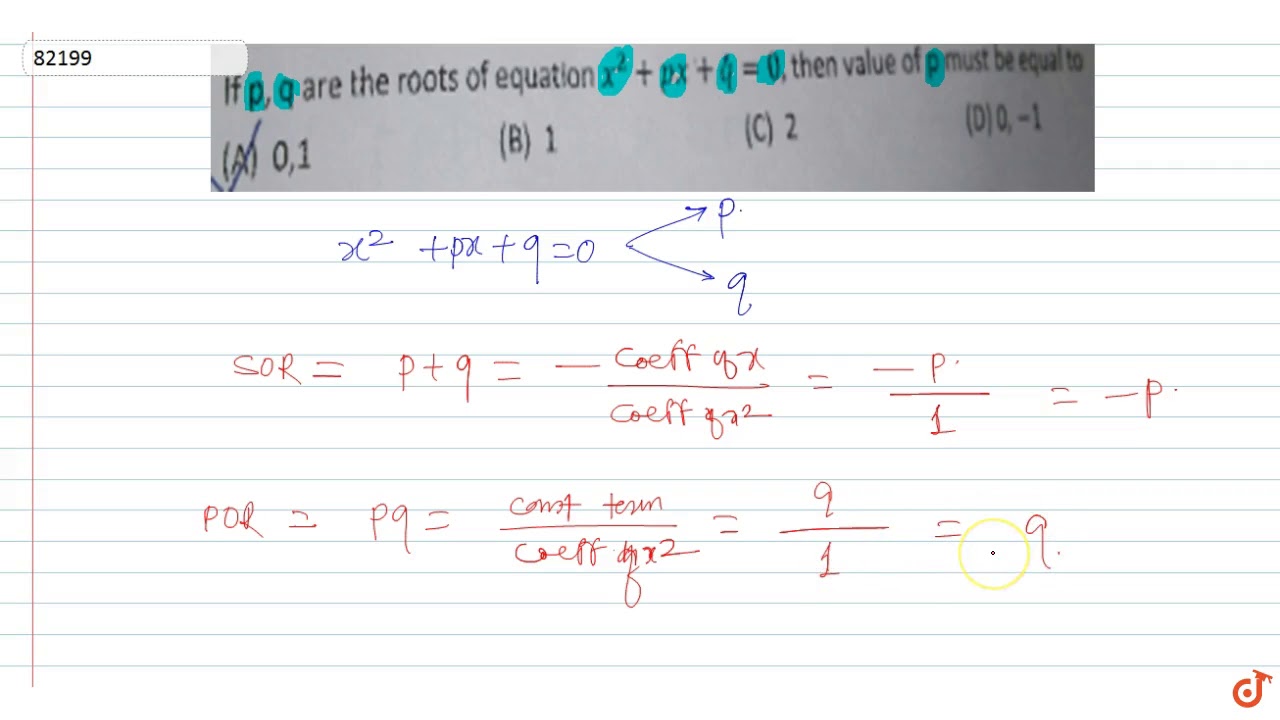 82199
If p, q are the roots of equation x² + px + q = 0, then value of p must be equal to
(A) 0,1 (B) 1 (C) 2 (D) 0, −1
x² + px + q = 0 p.
q
SOR = p + q = − coeff of x / coeff of x² = − p. / 1 = − p.
POR = pq = const term / coeff of x² = q / 1 = q.